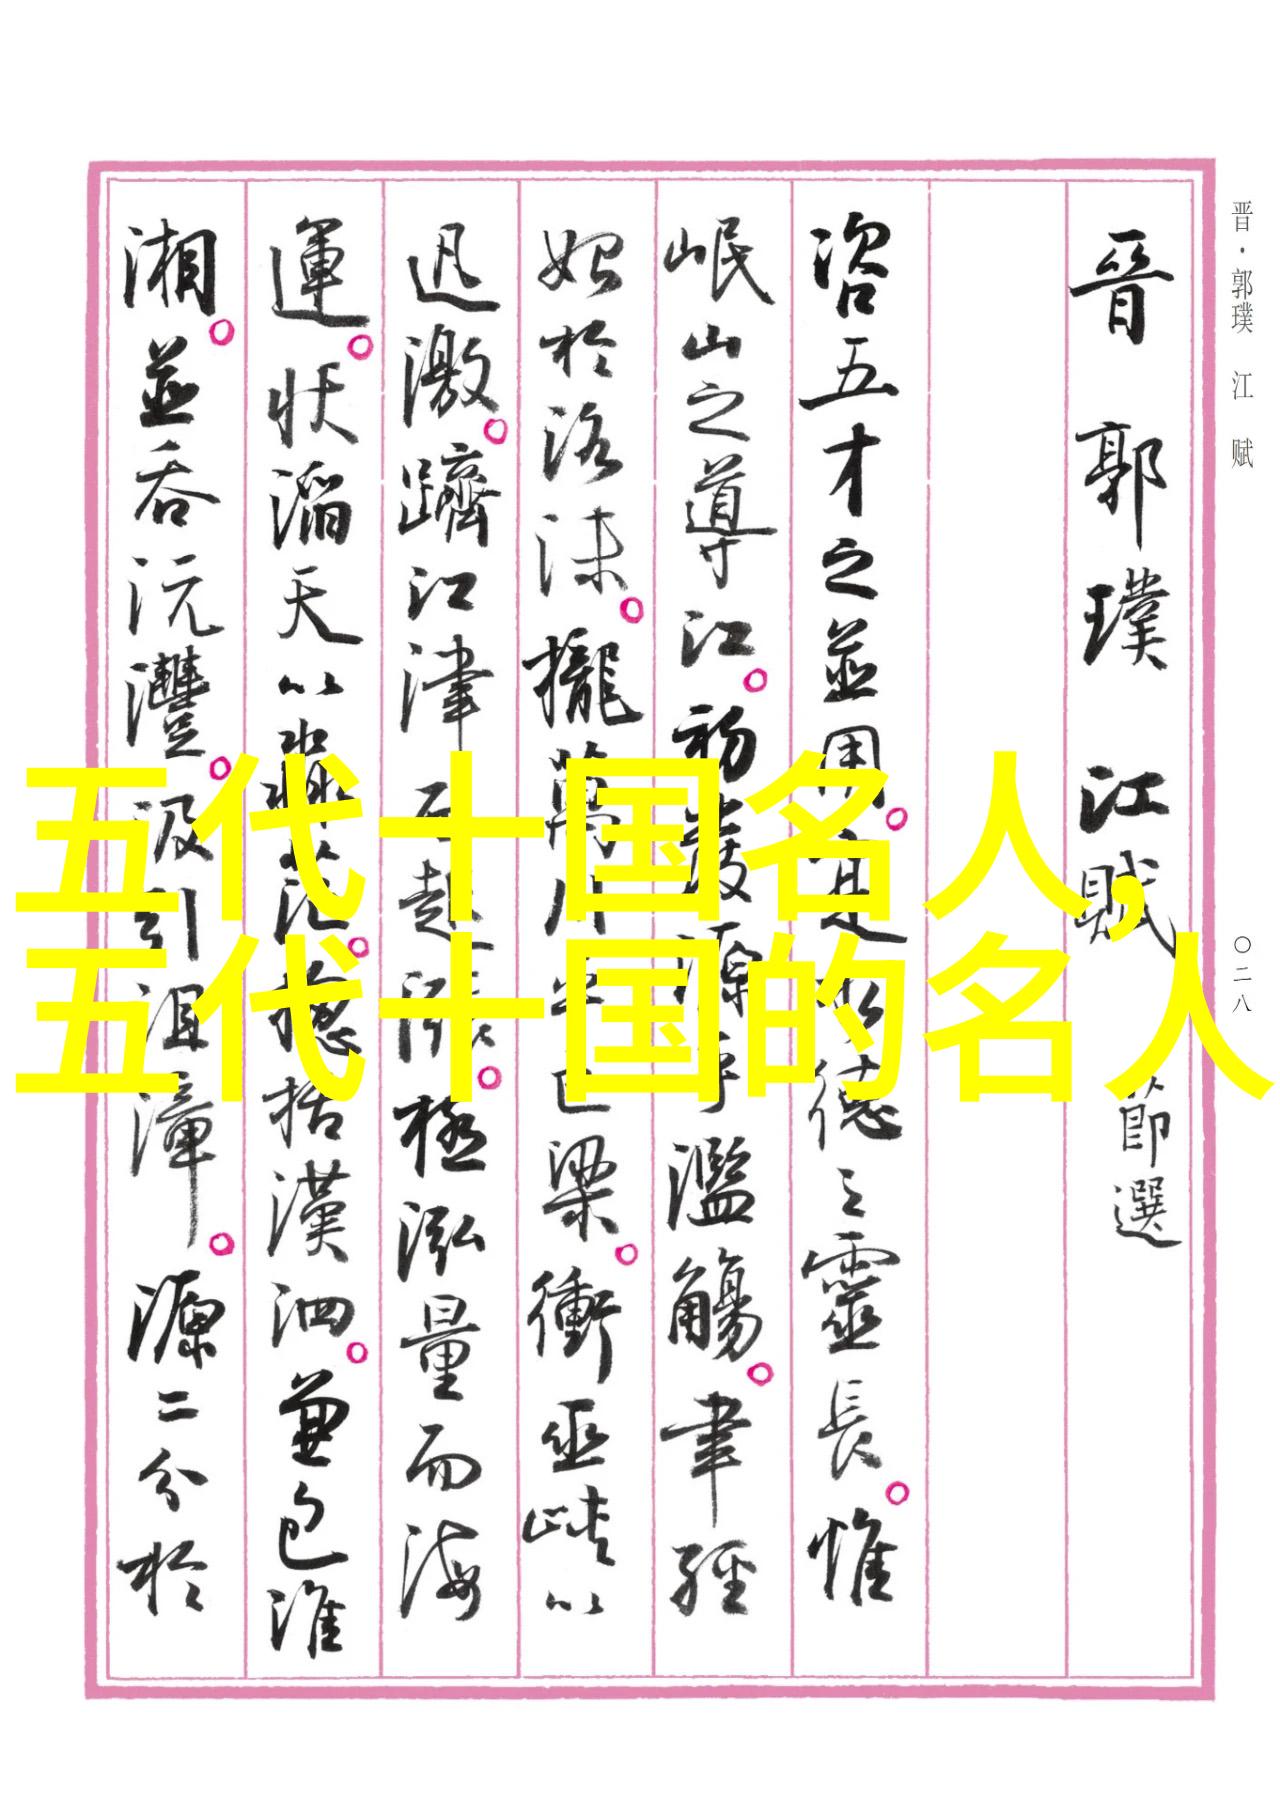 晋·郭璞 江 赋
〇二八
晉 郭璞 江賦 節選
咨五才之並用。寔水德之靈長。惟
岷山之導江。初發源乎濫觴。聿經
始於洛沬。攏萬川乎巴梁。衝巫峽以
迅激。躋江津而起漲。極泓量而海
運。狀滔天以淼茫。總括漢泗。兼包淮
湘。並吞沅灃。汲引沮漳。源二分於
五代十国名人,
五代十国的名人